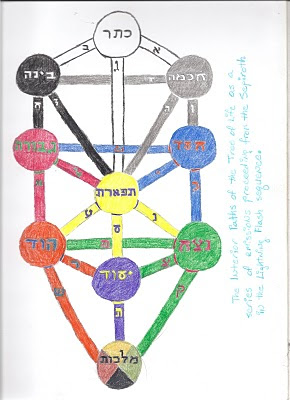 כתר
ב
א
ג
בינה
חכמה
גבורה
חסד
תפארת
הוד
נצח
יעוד
ת
ק
מלכות
The Interior Paths of the Tree of Life as a
series of emissions proceeding from the Sepiroth
in the Lightning Flash sequence.